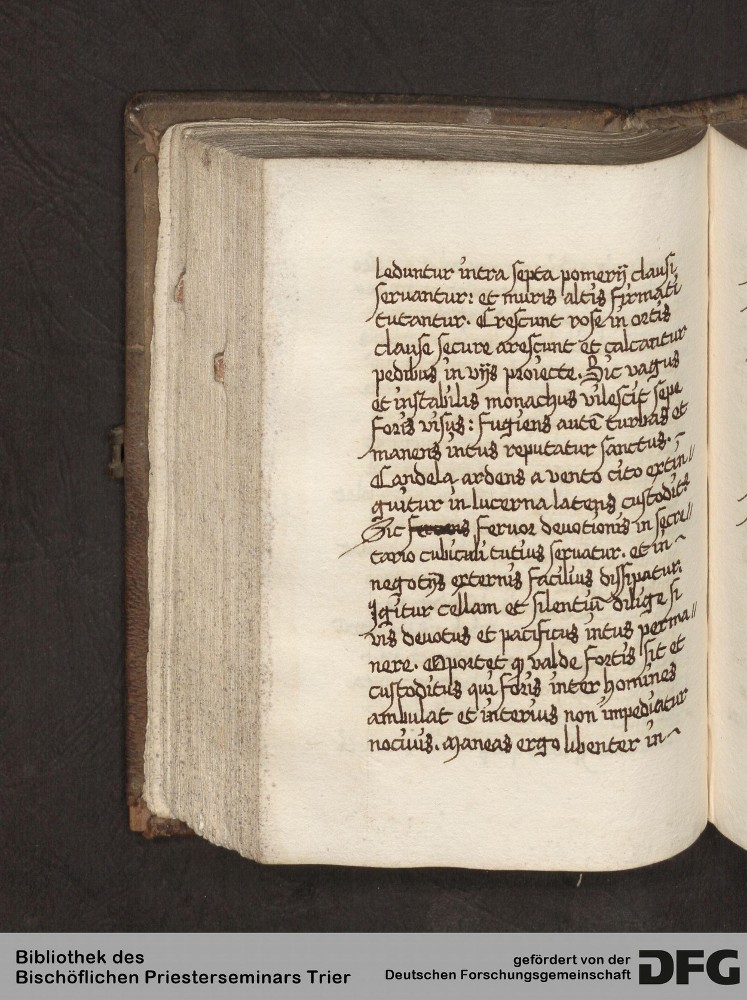 leduntur intra septa pomerij clausi
seruantur: et muris altis firmati
tutantur. Crescunt rose in ortis
clause secure arescunt et calcantur
pedibus in vijs proiecte. Sic vagus
et instabilis monachus vilescit sepe
foris visus: fugiens autē turbas et
manens intus reputatur sanctus.
Candela ardens a vento cito extin//
guitur in lucerna latens custodit᷑
Sic feruor deuotionis in secre//
tario cubiculi tutius seruatur. et in
negotijs externis facilius dissipatur.
Igitur cellam et silentiū dilige si
vis deuotus et pacificus intus perma//
nere. Oportet ꝙ valde fortis sit et
custoditus qui foris inter homines
ambulat et interius non impediatur
nociuis. Maneas ergo libenter in
Bibliothek des
Bischöflichen Priesterseminars Trier
gefördert von der
Deutschen Forschungsgemeinschaft
DFG